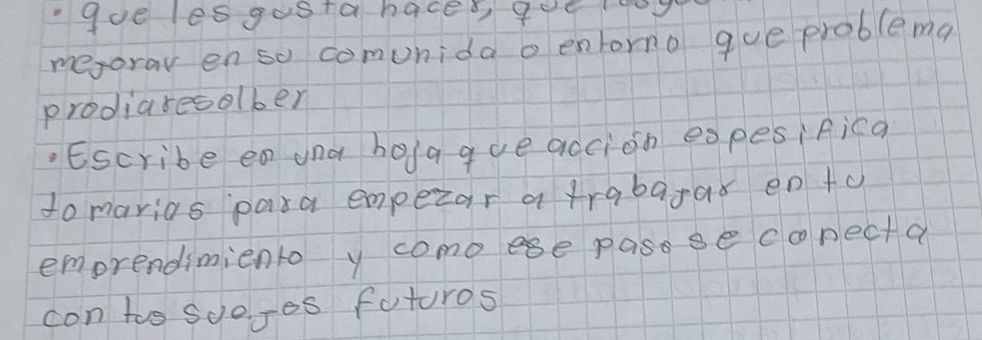 • que les gusta hacer, que
mejorar en su comunida o entorno que problema
prodiaresolber
• Escribe en una hoja que acción espesifica
tomarias para empezar a trabajar en tu
emprendimiento y como ese paso se conecta
con tus sueños futuros